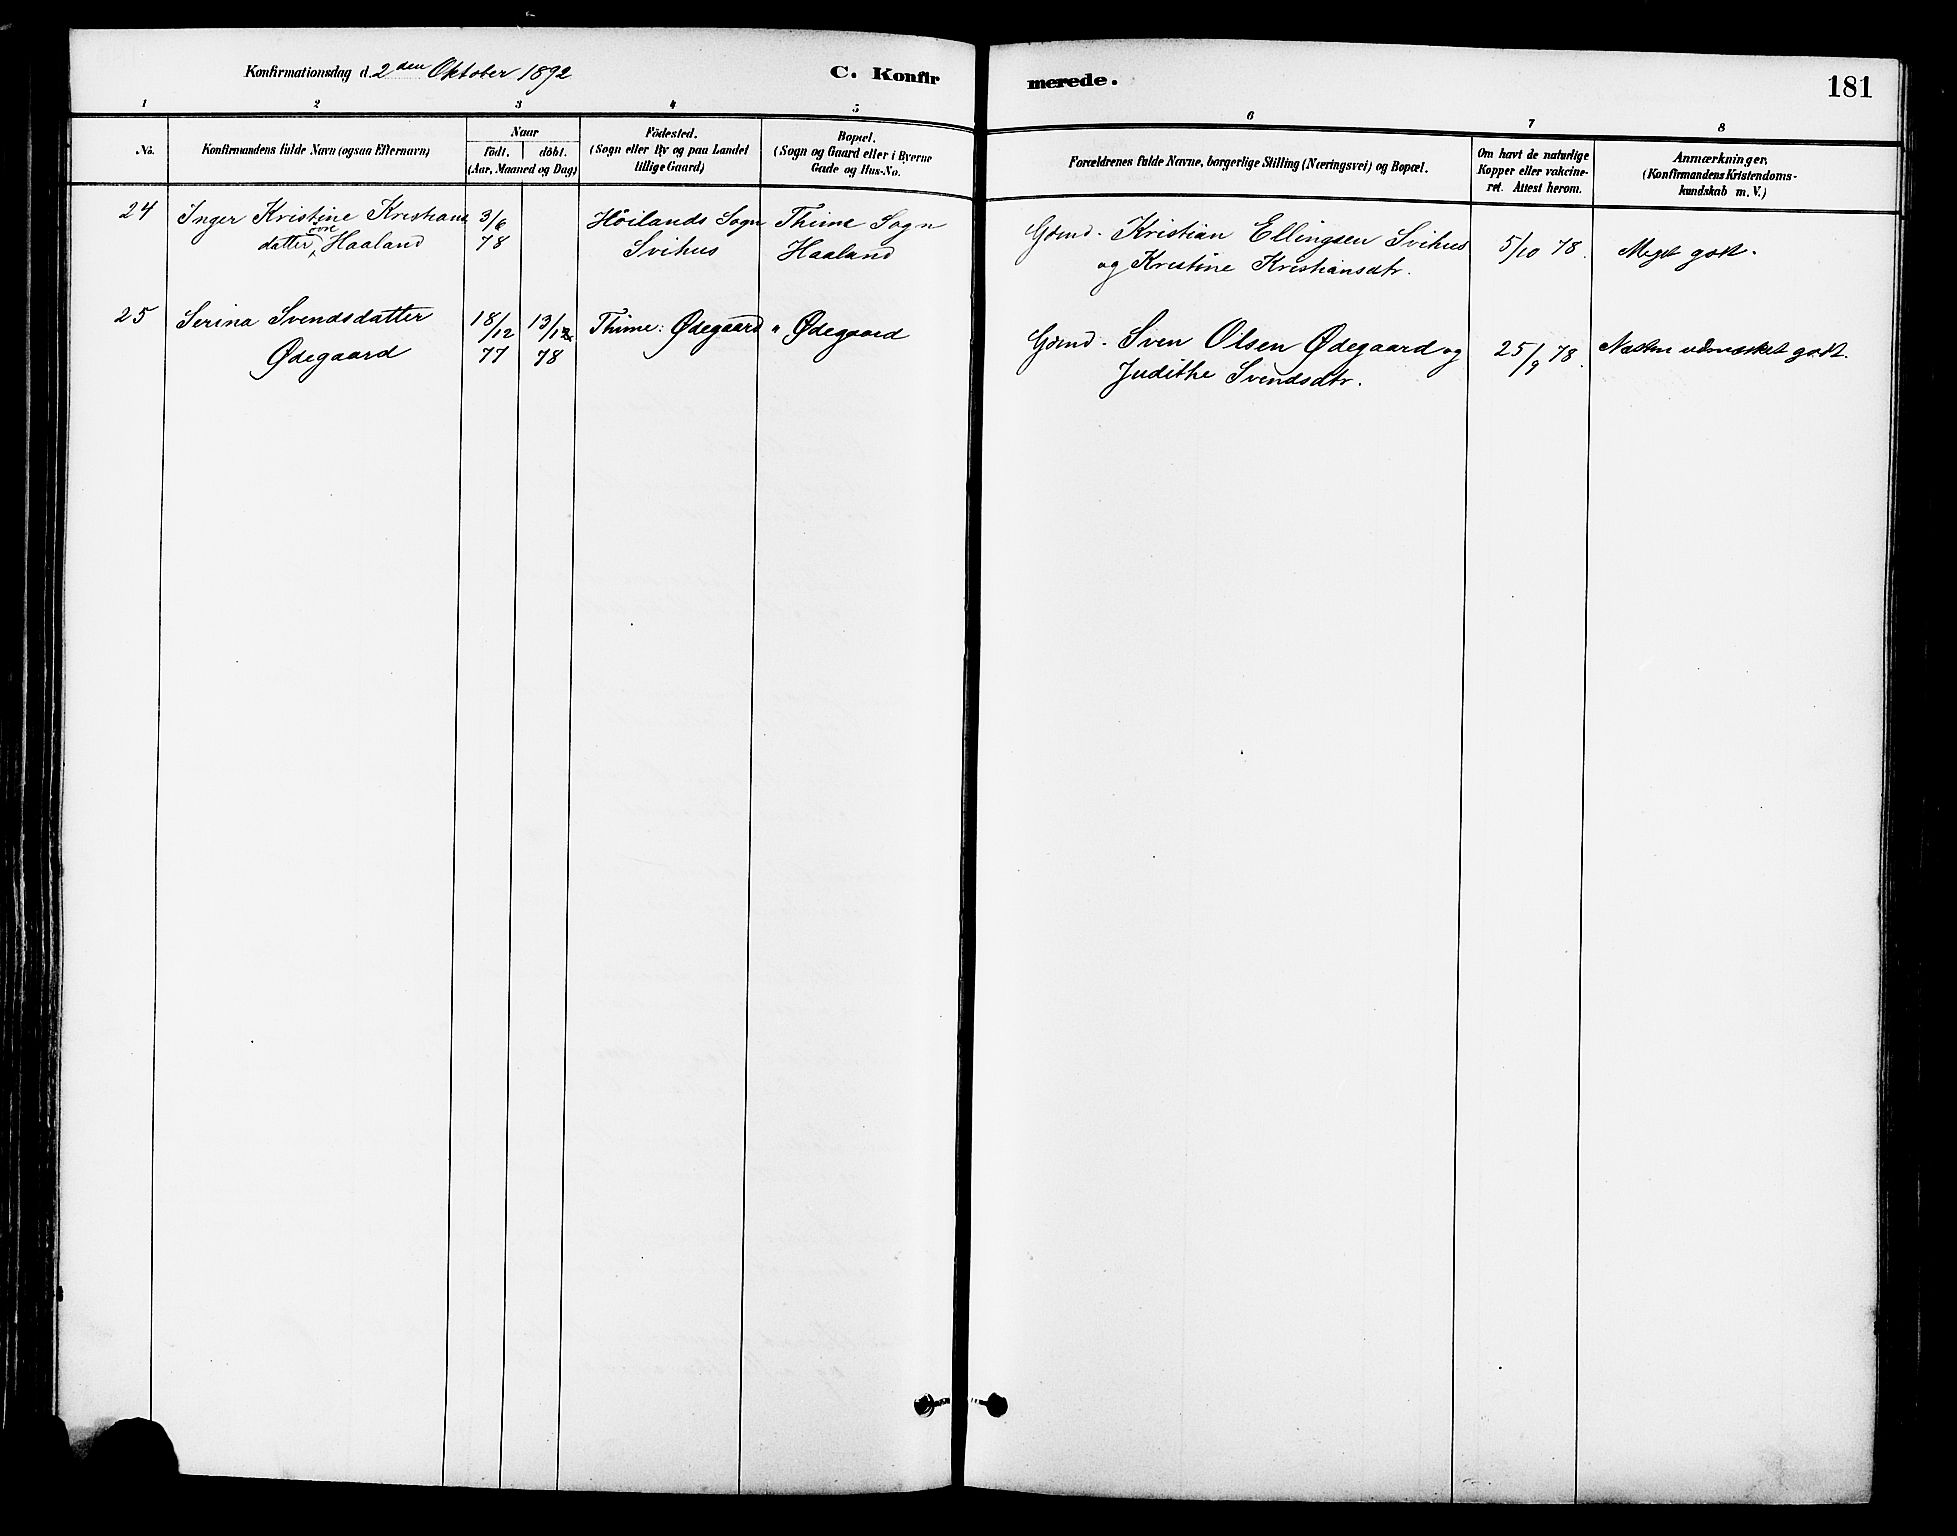 Konfirmationsdag d. 2den Oktober 1892
C. Konfirmerede.
181
1 2 3 4 5 6 7 8
No.
Konfirmandens fulde Navn (ogsaa Efternavn)
Naar
födt. döbt.
(Aar, Maaned og Dag)
Födested.
(Sogn eller By og paa Landet
tillige Gaard)
Bopæl.
(Sogn og Gaard eller i Byerne
Gade og Hus-No.
Forældrenes fulde Navne, borgerlige Stilling (Næringsvei) og Bopæl.
Om havt de naturlige
Kopper eller vakcine-
ret. Attest herom.
Anmærkninger,
(Konfirmandens Kristendoms-
kundskab m. V.)
24 Inger Kristine Kristians 3/6 Höilands Sogn Thime Sogn Gdmd. Kristian Ellingsen Svihus 5/10 78. Meget godt.
datter Haaland 78 Svihus Haaland og Kristine Kristiansdtr.
25 Serina Svendsdatter 18/12 13/1 Thime: Ødegaard " Ødegaard Gdmd. Sven Olsen Ødegaard og 25/9 78. Næsten udmærket godt.
Ødegaard 77 78 Judithe Svendsdtr.